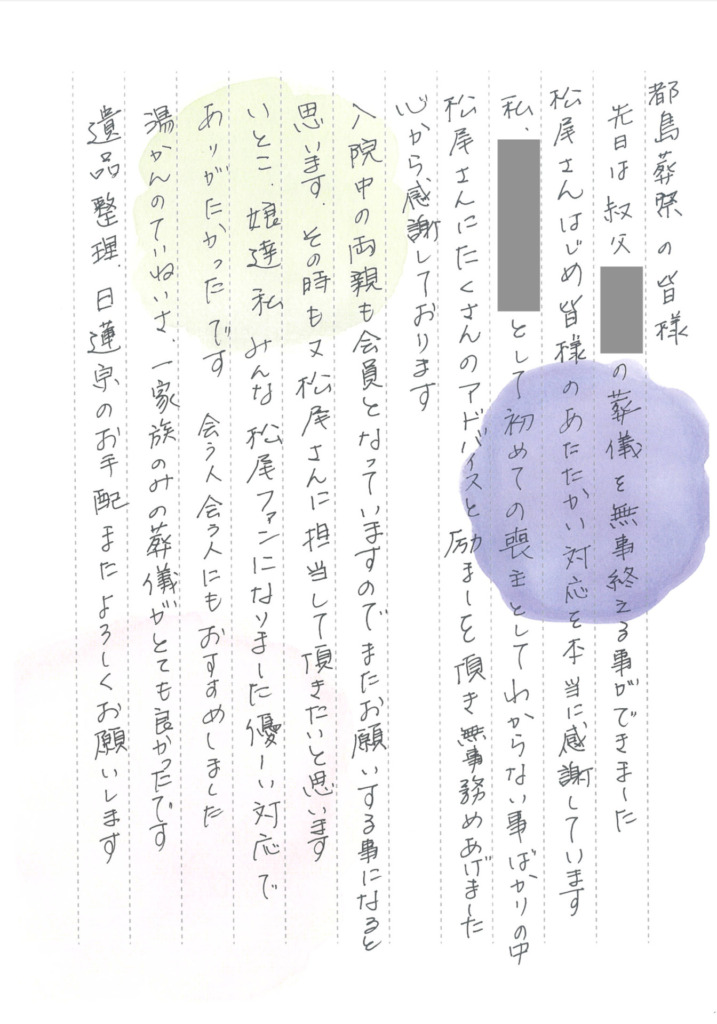 都島葬祭の皆様
先日は叔父 の葬儀を無事終える事ができました
松尾さんはじめ皆様のあたたかい対応を本当に感謝しています
私、 として初めての喪主としてわからない事ばかりの中
松尾さんにたくさんのアドバイスと励ましを頂き無事務めあげました
心から感謝しております
入院中の両親も会員となっていますのでまたお願いする事になると
思います。その時も又松尾さんに担当して頂きたいと思います
いとこ、娘達 私 みんな松尾ファンになりました優しい対応で
ありがたかったです 会う人会う人にもおすすめしました
湯かんのていねいさ、一家族のみの葬儀がとても良かったです
遺品整理、日蓮宗のお手配またよろしくお願いします